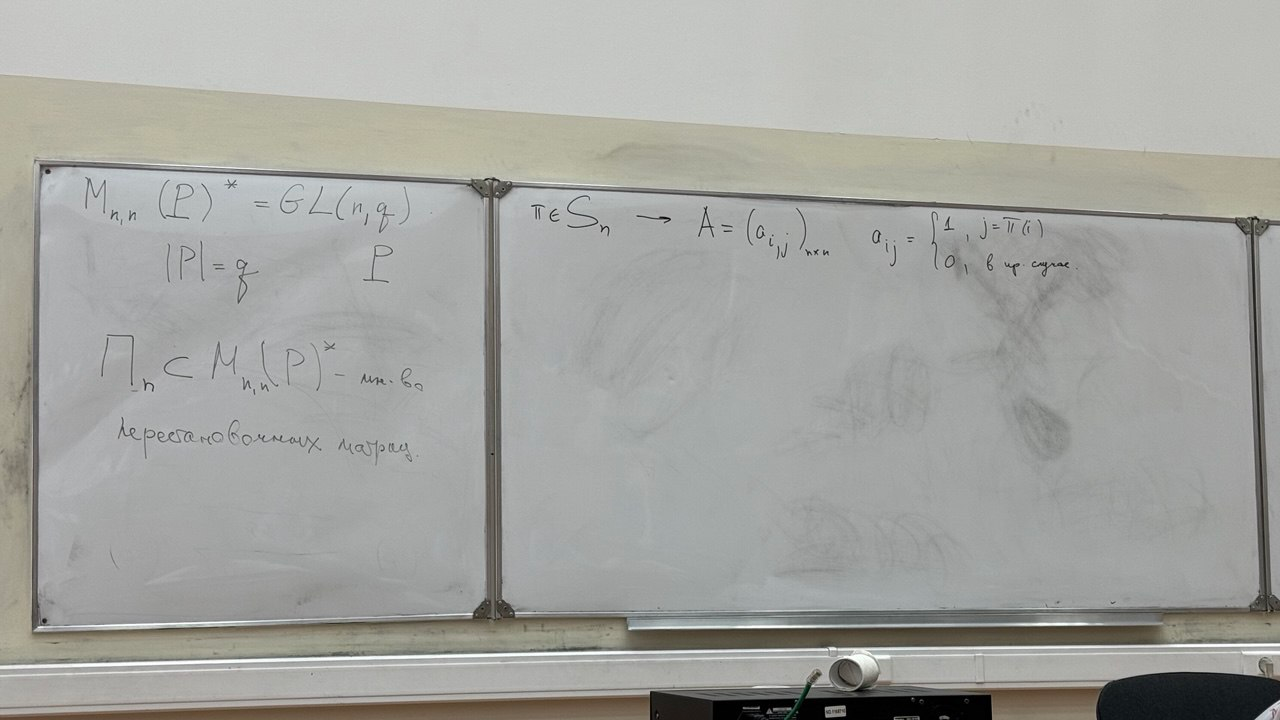 M_{n,n} (P)^* = GL(n,q)
|P| = q P
П_n ⊂ M_{n,n}(P)^* – мн-во
перестановочных матриц.
π ∈ S_n → A = (a_{i,j})_{n×n} a_{ij} = { 1, j = π(i)
0, в пр. случае.